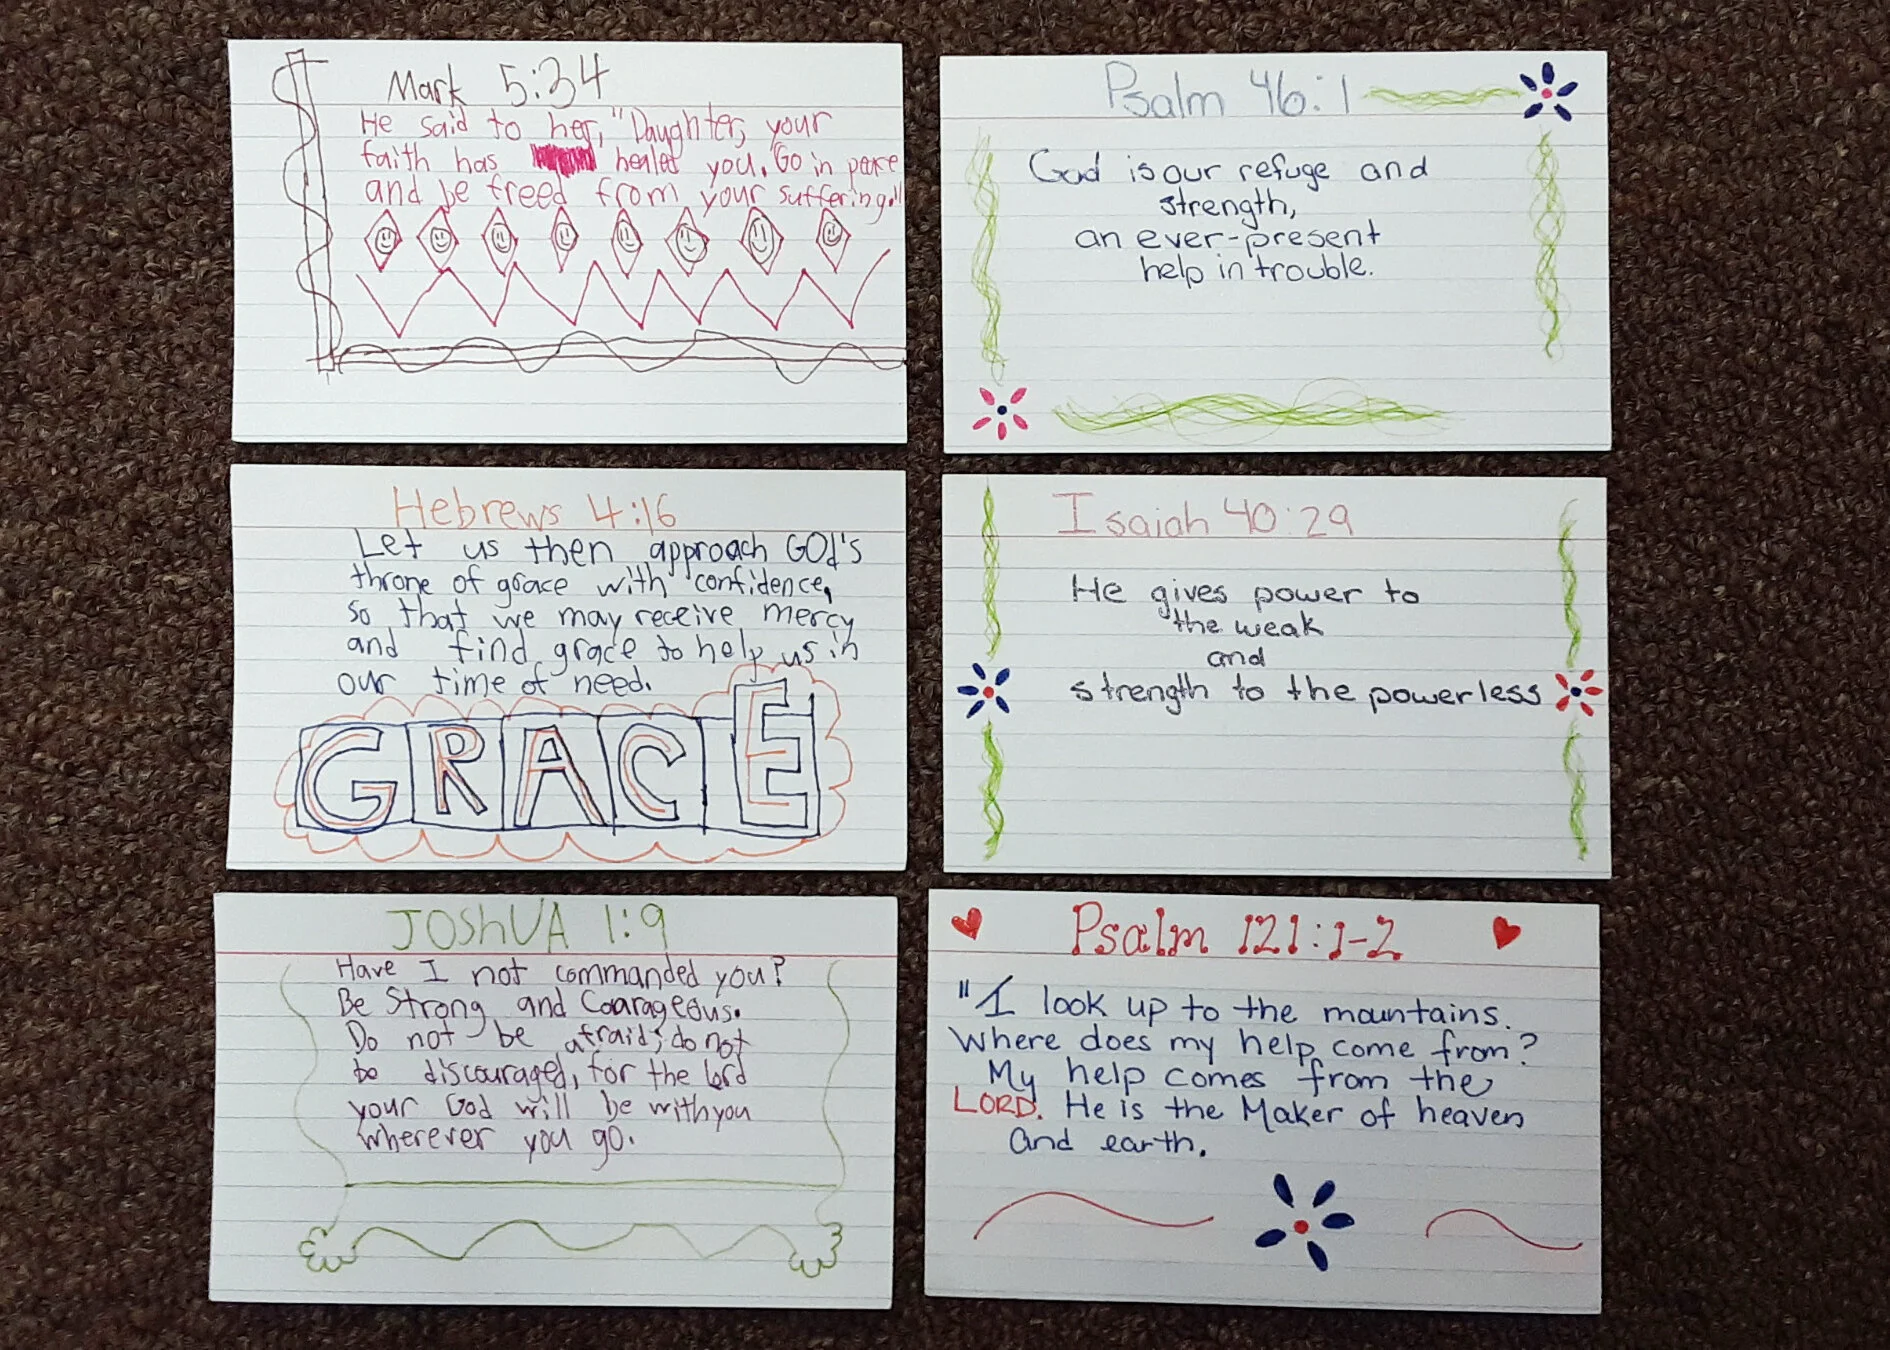 Mark 5:34
He said to her, "Daughter, your
faith has healed you. Go in peace
and be freed from your suffering."
Psalm 46:1
God is our refuge and
strength,
an ever-present
help in trouble.
Hebrews 4:16
Let us then approach GOd's
throne of grace with confidence,
so that we may receive mercy
and find grace to help us in
our time of need.
GRACE
Isaiah 40:29
He gives power to
the weak
and
strength to the powerless
JOShUA 1:9
Have I not commanded you?
Be Strong and Coarageous.
Do not be afraid; do not
be discouraged, for the lord
your God will be with you
wherever you go.
Psalm 121:1-2
"I look up to the mountains.
Where does my help come from?
My help comes from the
LORD. He is the Maker of heaven
and earth.